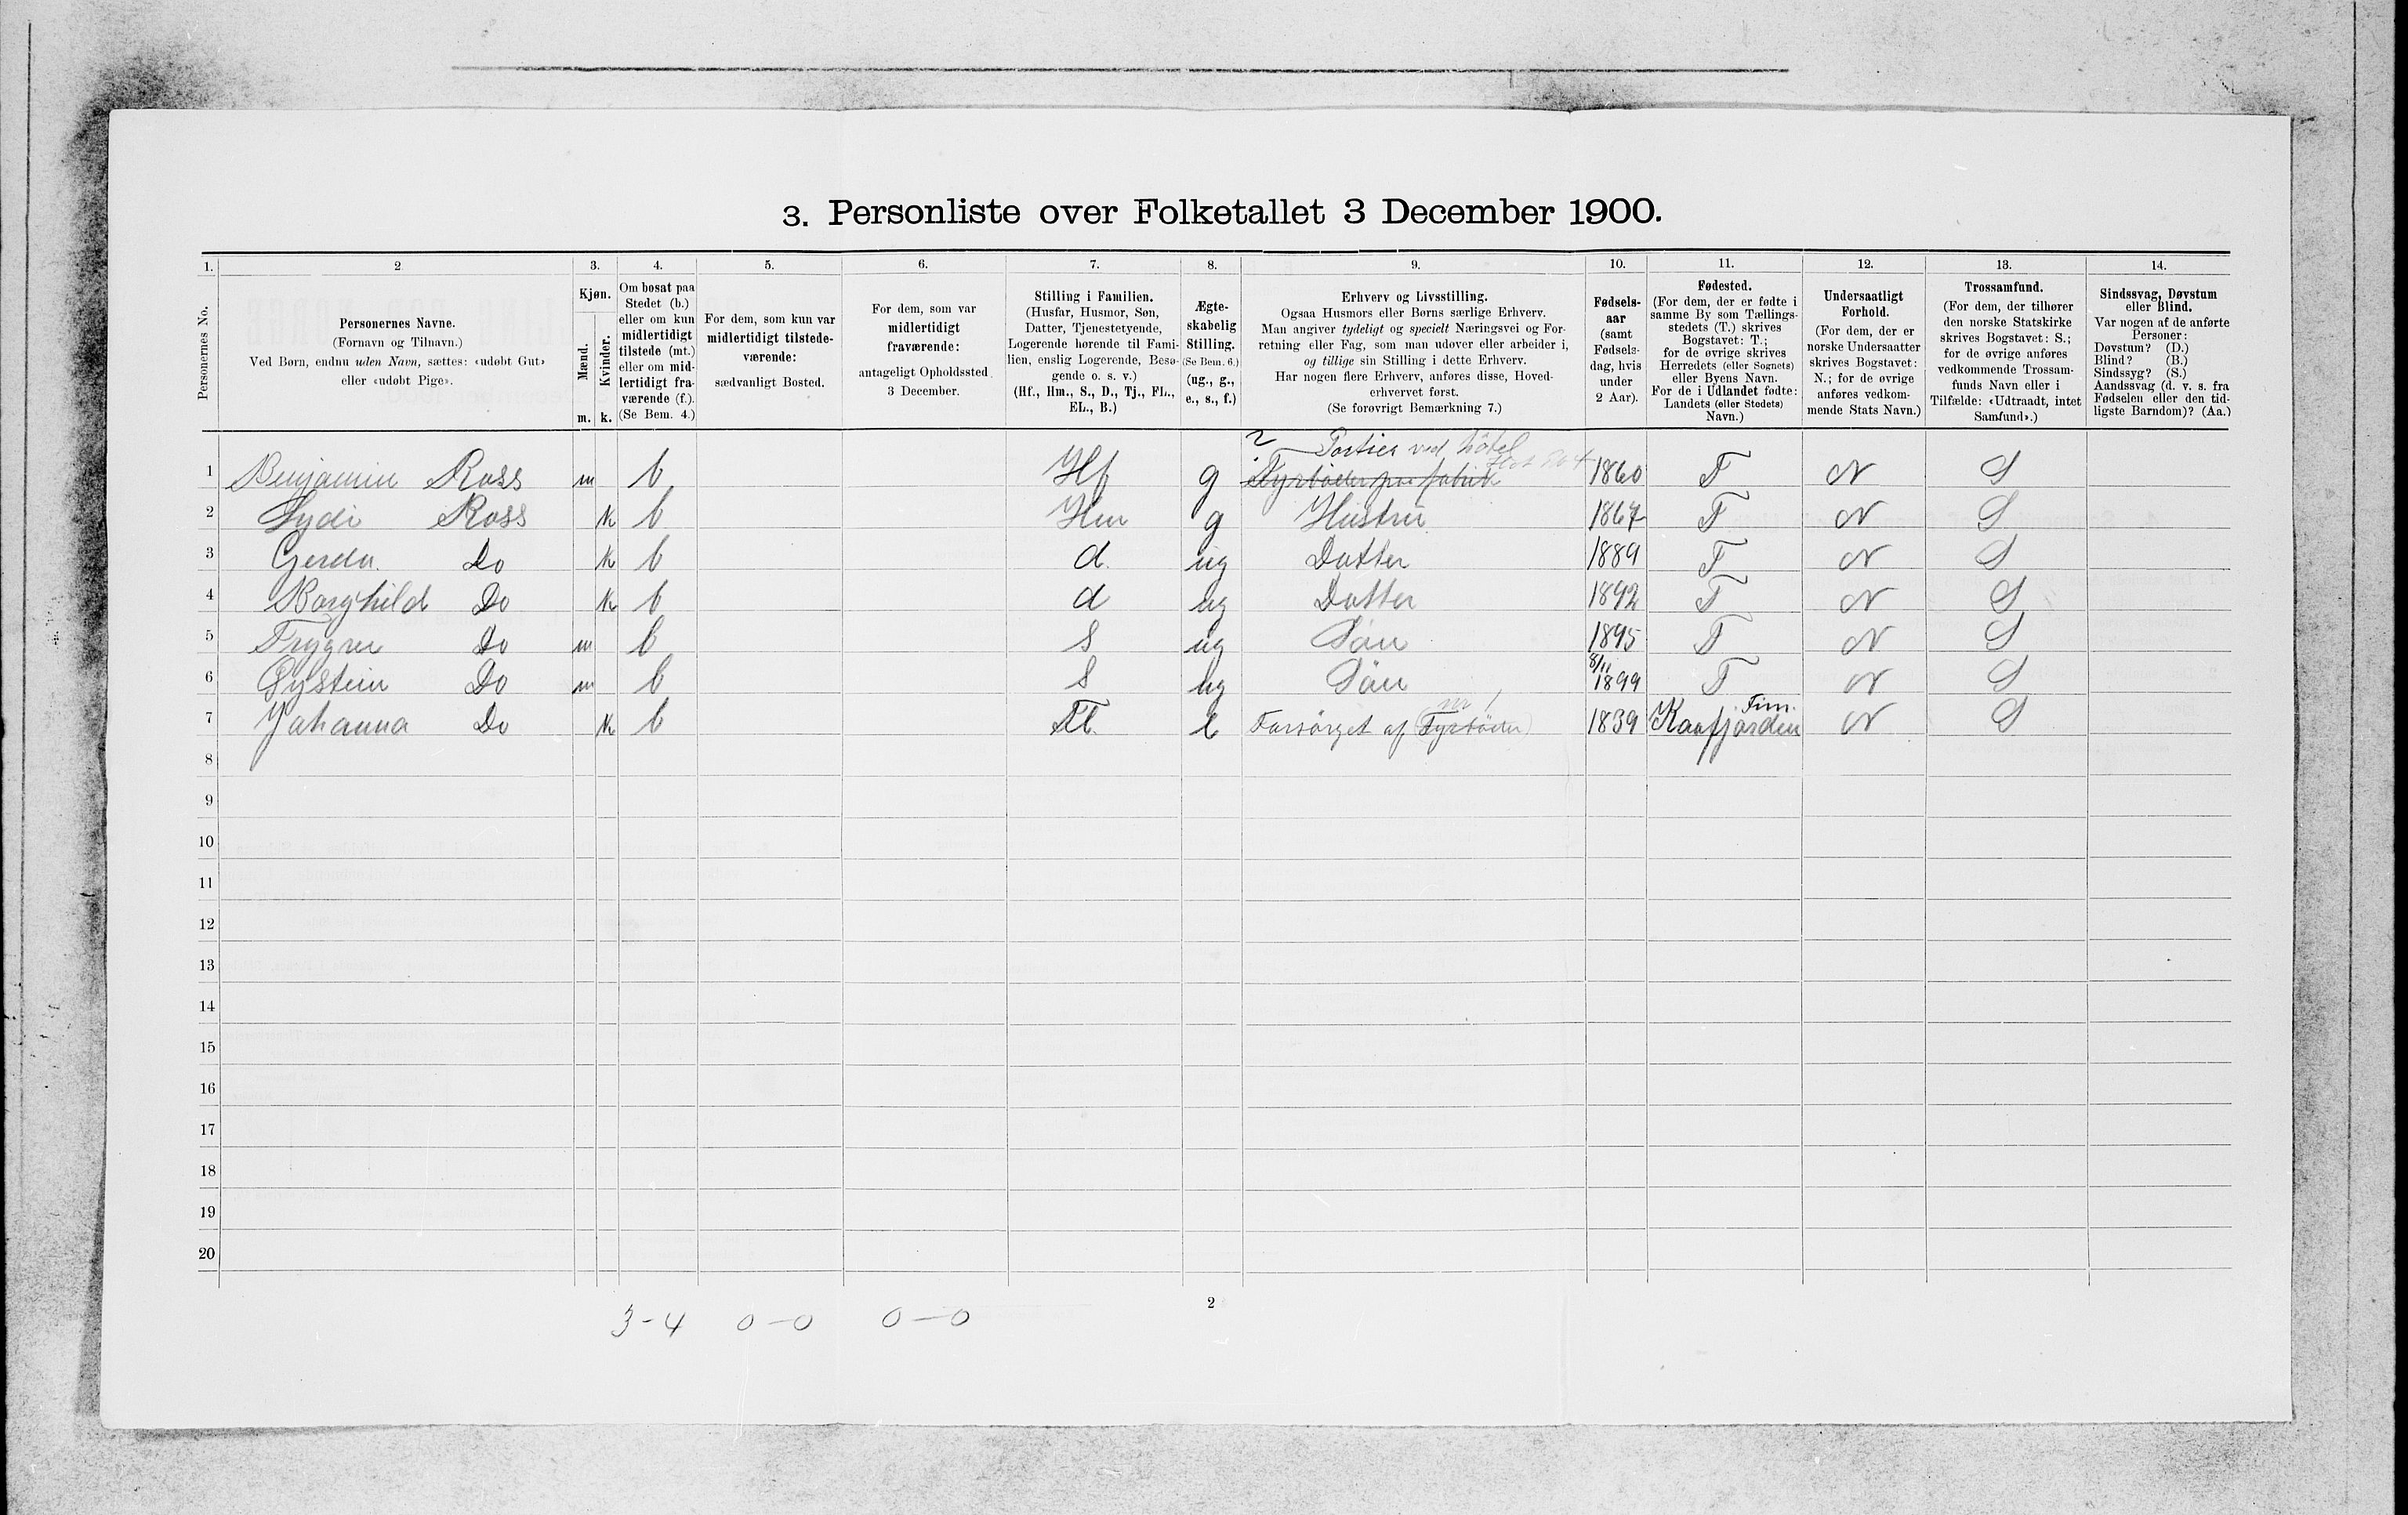 3. Personliste over Folketallet 3 December 1900.
1. 2 3. 4. 5. 6. 7. 8. 9. 10. 11. 12. 13. 14.
Personernes No.
Personernes Navne.
(Fornavn og Tilnavn.)
Ved Børn, endnu uden Navn, sættes: «udøbt Gut»
eller «udøbt Pige».
Kjøn.
Mænd. Kvinder.
m. k.
Om bosat paa
Stedet (b.)
eller om kun
midlertidigt
tilstede (mt.)
eller om mid-
lertidigt fra-
værende (f.).
(Se Bem. 4.)
For dem, som kun var
midlertidigt tilstede-
værende:
sædvanligt Bosted.
For dem, som var
midlertidigt
fraværende:
antageligt Opholdssted
3 December.
Stilling i Familien.
(Husfar, Husmor, Søn,
Datter, Tjenestetyende,
Logerende hørende til Fami-
lien, enslig Logerende, Besø-
gende o. s. v.)
(Hf., Hm., S., D., Tj., FL.,
EL., B.)
Ægte-
skabelig
Stilling.
(Se Bem. 6.)
(ug., g.,
e., s., f.)
Erhverv og Livsstilling.
Ogsaa Husmors eller Børns særlige Erhverv.
Man angiver tydeligt og specielt Næringsvei og For-
retning eller Fag, som man udøver eller arbeider i,
og tillige sin Stilling i dette Erhverv.
Har nogen flere Erhverv, anføres disse, Hoved-
erhvervet først.
(Se forøvrigt Bemærkning 7.)
Fødsels-
aar
(samt
Fødsels-
dag, hvis
under
2 Aar).
Fødested.
(For dem, der er fødte i
samme By som Tællings-
stedets (T.) skrives
Bogstavet: T.;
for de øvrige skrives
Herredets (eller Sognets)
eller Byens Navn.
For de i Udlandet fødte:
Landets (eller Stedets)
Navn.)
Undersaatligt
Forhold.
(For dem, der er
norske Undersaatter
skrives Bogstavet:
N.; for de øvrige
anføres vedkom-
mende Stats Navn.)
Trossamfund.
(For dem, der tilhører
den norske Statskirke
skrives Bogstavet: S.;
for de øvrige anføres
vedkommende Trossam-
funds Navn eller i
Tilfælde: «Udtraadt, intet
Samfund».)
Sindssvag, Døvstum
eller Blind.
Var nogen af de anførte
Personer:
Døvstum? (D.)
Blind? (B.)
Sindssyg? (S.)
Aandssvag (d. v. s. fra
Fødselen eller den tid-
ligste Barndom)? (Aa.)
2 Portier ved hôtel
1 Benjamin Ross m b Hf g Fyrbøder paa fabrik 1860 T N S
2 Lydi Ross k b Hm g Hustru 1867 T N S
3 Gerda Do k b d. ug Datter 1889 T N S
4 Borghild Do k b d ug Datter 1892 T N S
5 Trygve Do m b S ug Søn 1895 T N S
6 Øystein Do m b S ug Søn 8/11 1899 T N S
7 Johanna Do k b FL. e Forsørget af (Fyrbøder) nr 1 1839 Kaafjorden Fim. N S
8
9
10
11
12
13
14
15
16
17
18
19
20
2
3-4 0-0 0-0